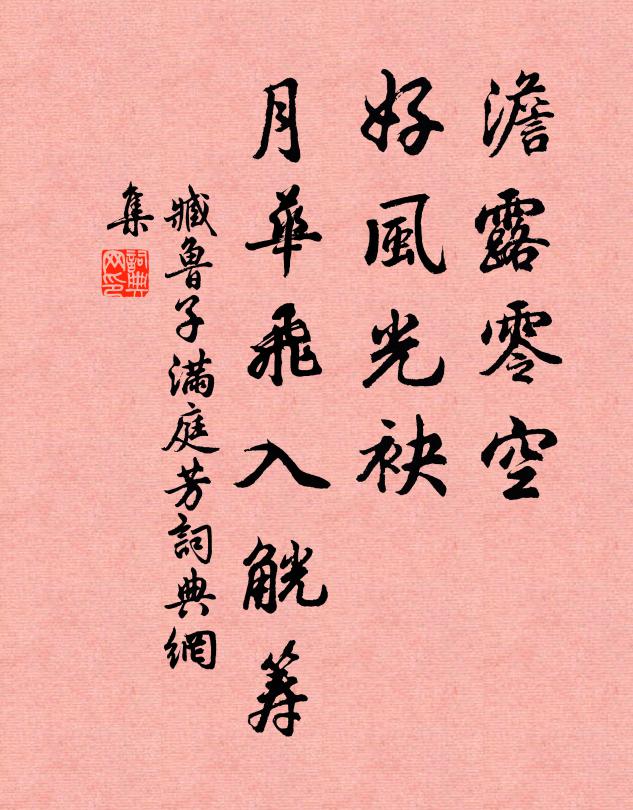 澹露零空
好風光袂
月華飛入觥筹
臧魯子滿庭芳詞典網
集
詞典
网印